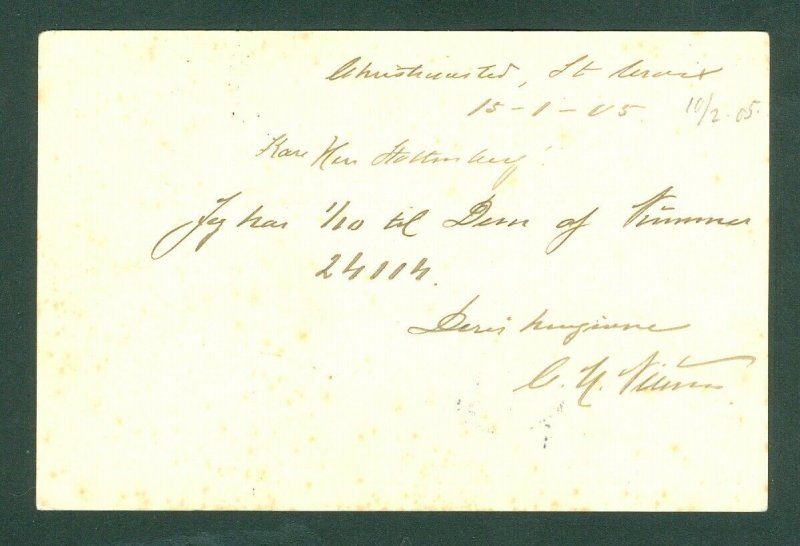 Christiansted, St Croix
15-1-05. 10/2.05.
Kære Herr Stoltenberg!
Jeg har 1/10 til Dem af Nummer
24004.
Deres hengivne
C. N.